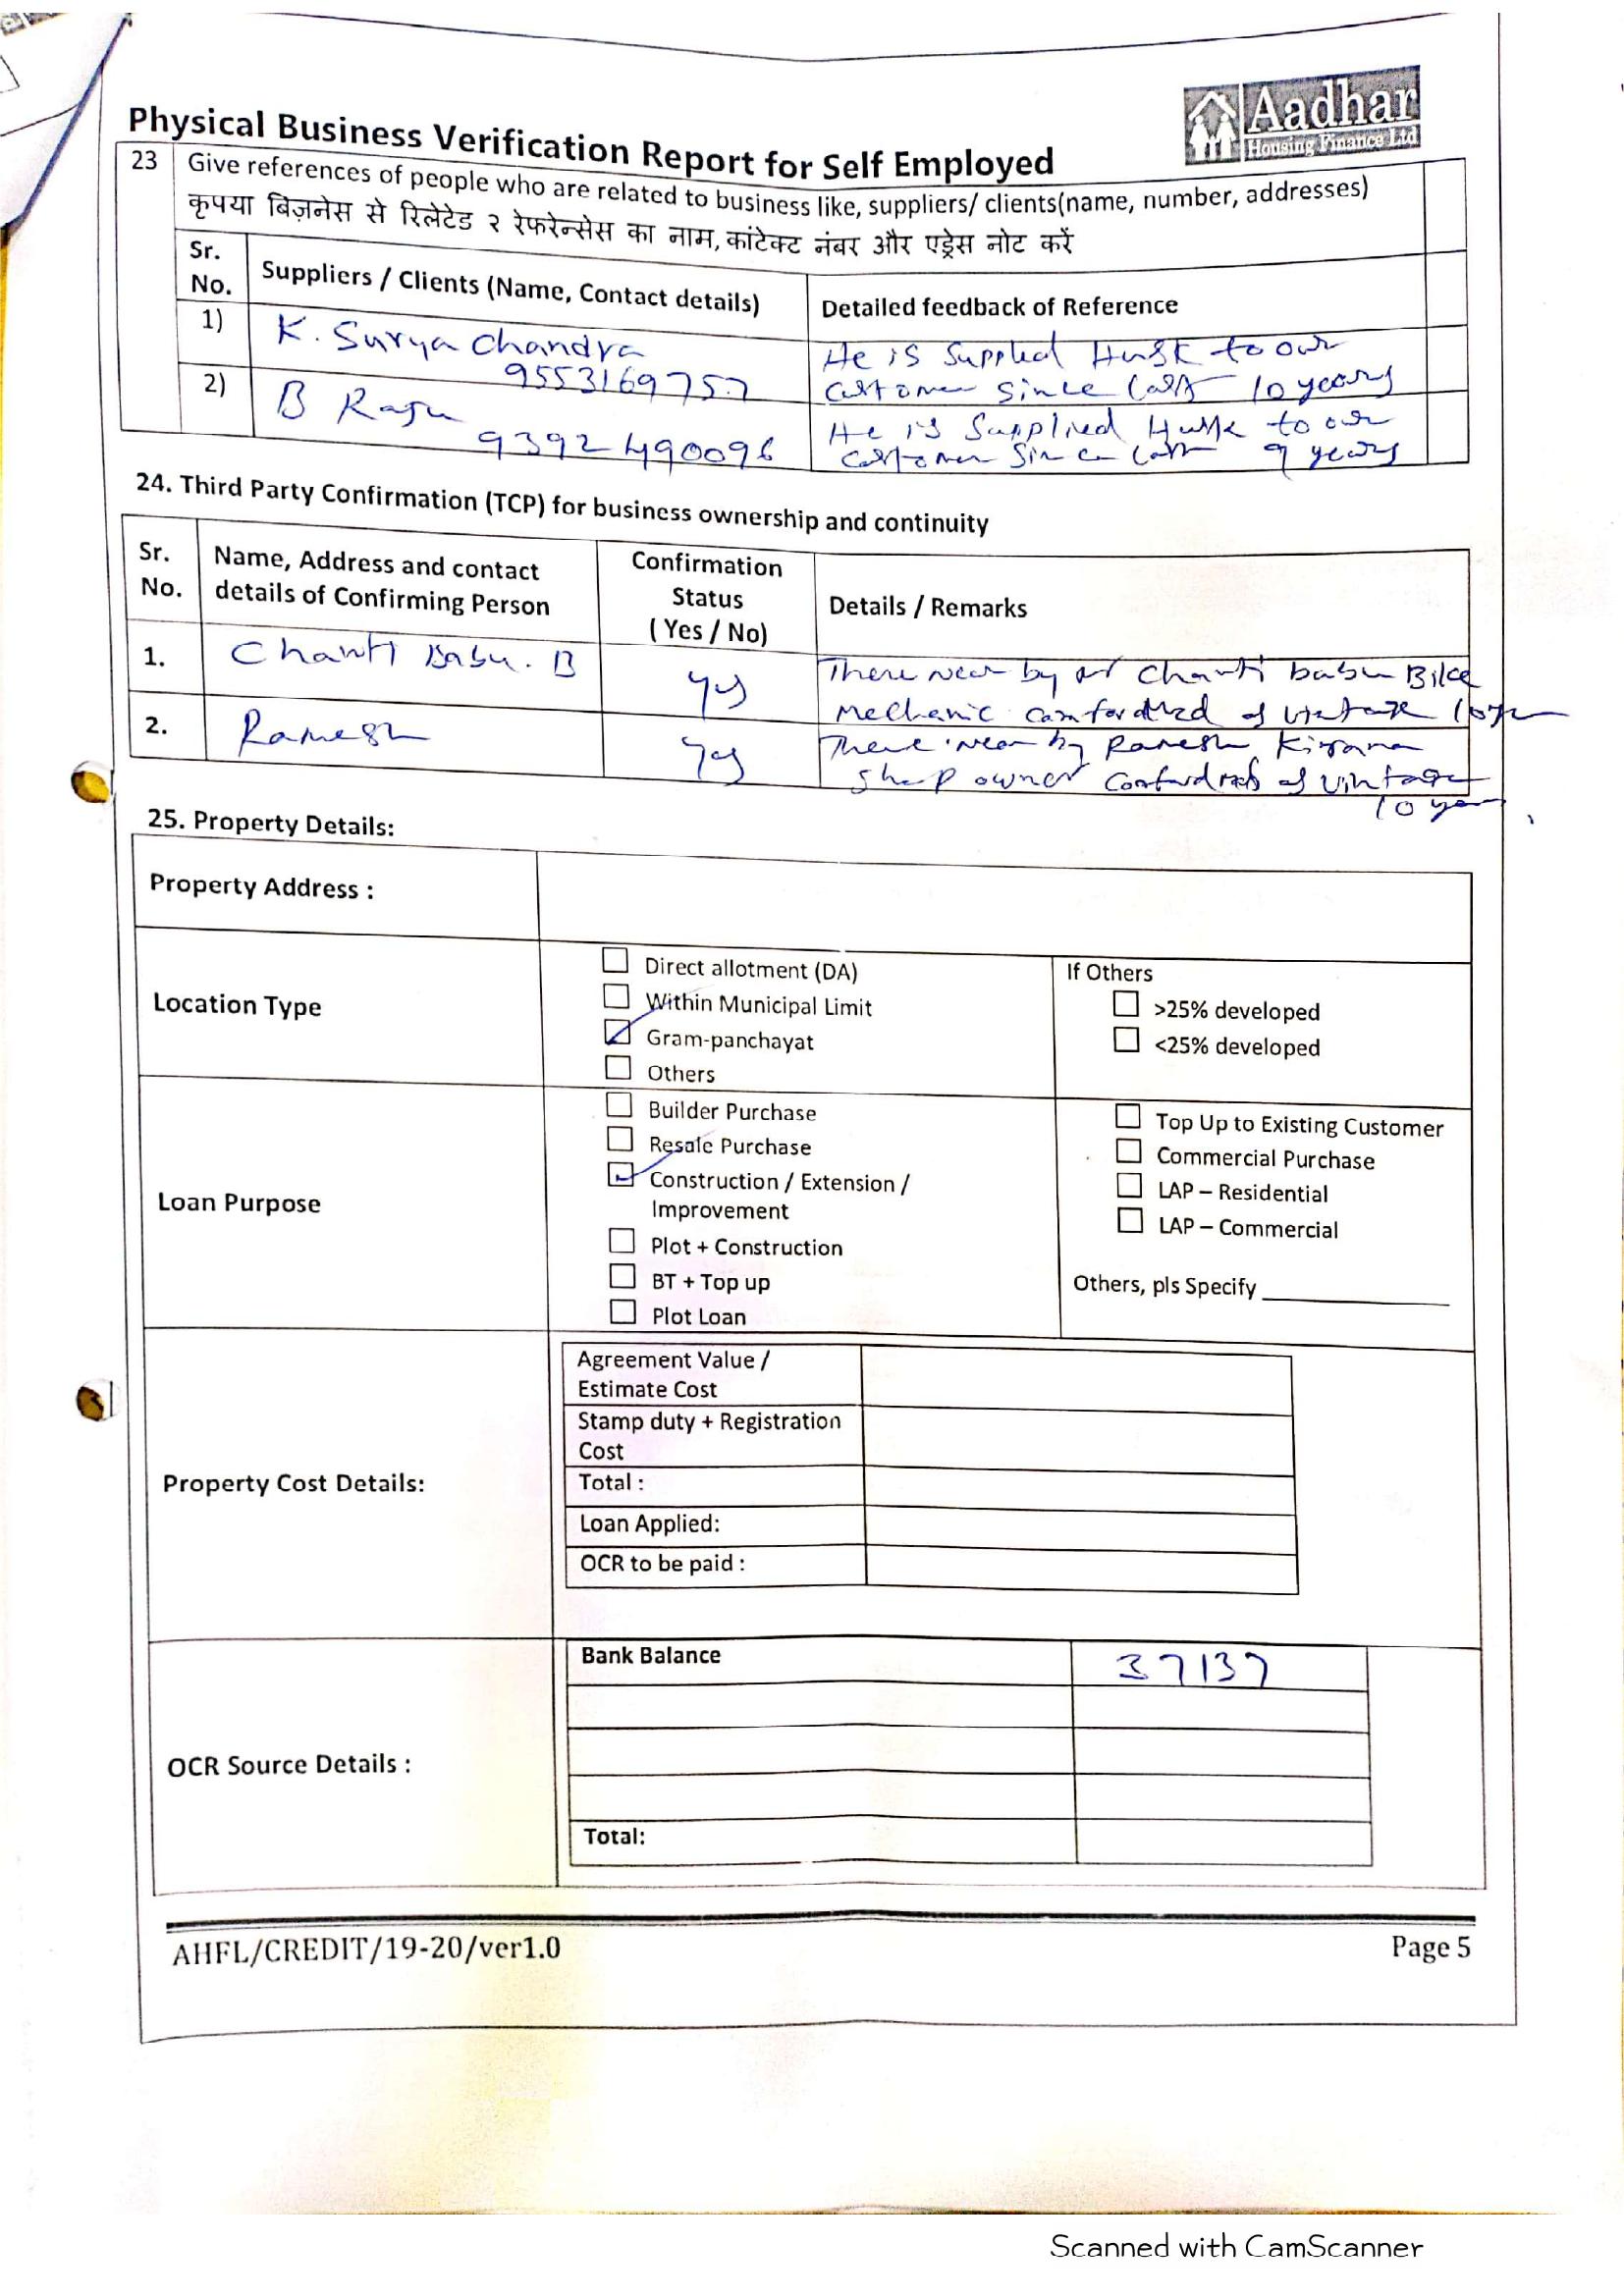 Aadhar
Housing Finance Ltd
Physical Business Verification Report for Self Employed
23 Give references of people who are related to business like, suppliers/ clients(name, number, addresses)
कृपया बिज़नेस से रिलेटेड २ रेफरेन्सेस का नाम, कांटेक्ट नंबर और एड्रेस नोट करें
Sr. No. Suppliers / Clients (Name, Contact details) Detailed feedback of Reference
1) K. Surya Chandra
9553169757
He is Supplied Husk to our
Customer Since last 10 years
2) B Raju
9392490096
He is Supplied Husk to our
Customer Since last 9 years
24. Third Party Confirmation (TCP) for business ownership and continuity
Sr. No. Name, Address and contact details of Confirming Person Confirmation Status ( Yes / No) Details / Remarks
1. Chanti Babu. B yes
There near by Chanti babu Bike
Mechanic of vintage 10 
2. Ramesh yes
There near by Ramesh Kirana
Shop owner of vintage
10 year
25. Property Details:
Property Address :
Location Type
Direct allotment (DA)
Within Municipal Limit
Gram-panchayat
Others
If Others
>25% developed
<25% developed
Loan Purpose
Builder Purchase
Resale Purchase
Construction / Extension /
Improvement
Plot + Construction
BT + Top up
Plot Loan
Top Up to Existing Customer
Commercial Purchase
LAP – Residential
LAP – Commercial
Others, pls Specify
Property Cost Details:
Agreement Value /
Estimate Cost
Stamp duty + Registration
Cost
Total :
Loan Applied:
OCR to be paid :
OCR Source Details :
Bank Balance 37137
Total:
AHFL/CREDIT/19-20/ver1.0 Page 5
Scanned with CamScanner